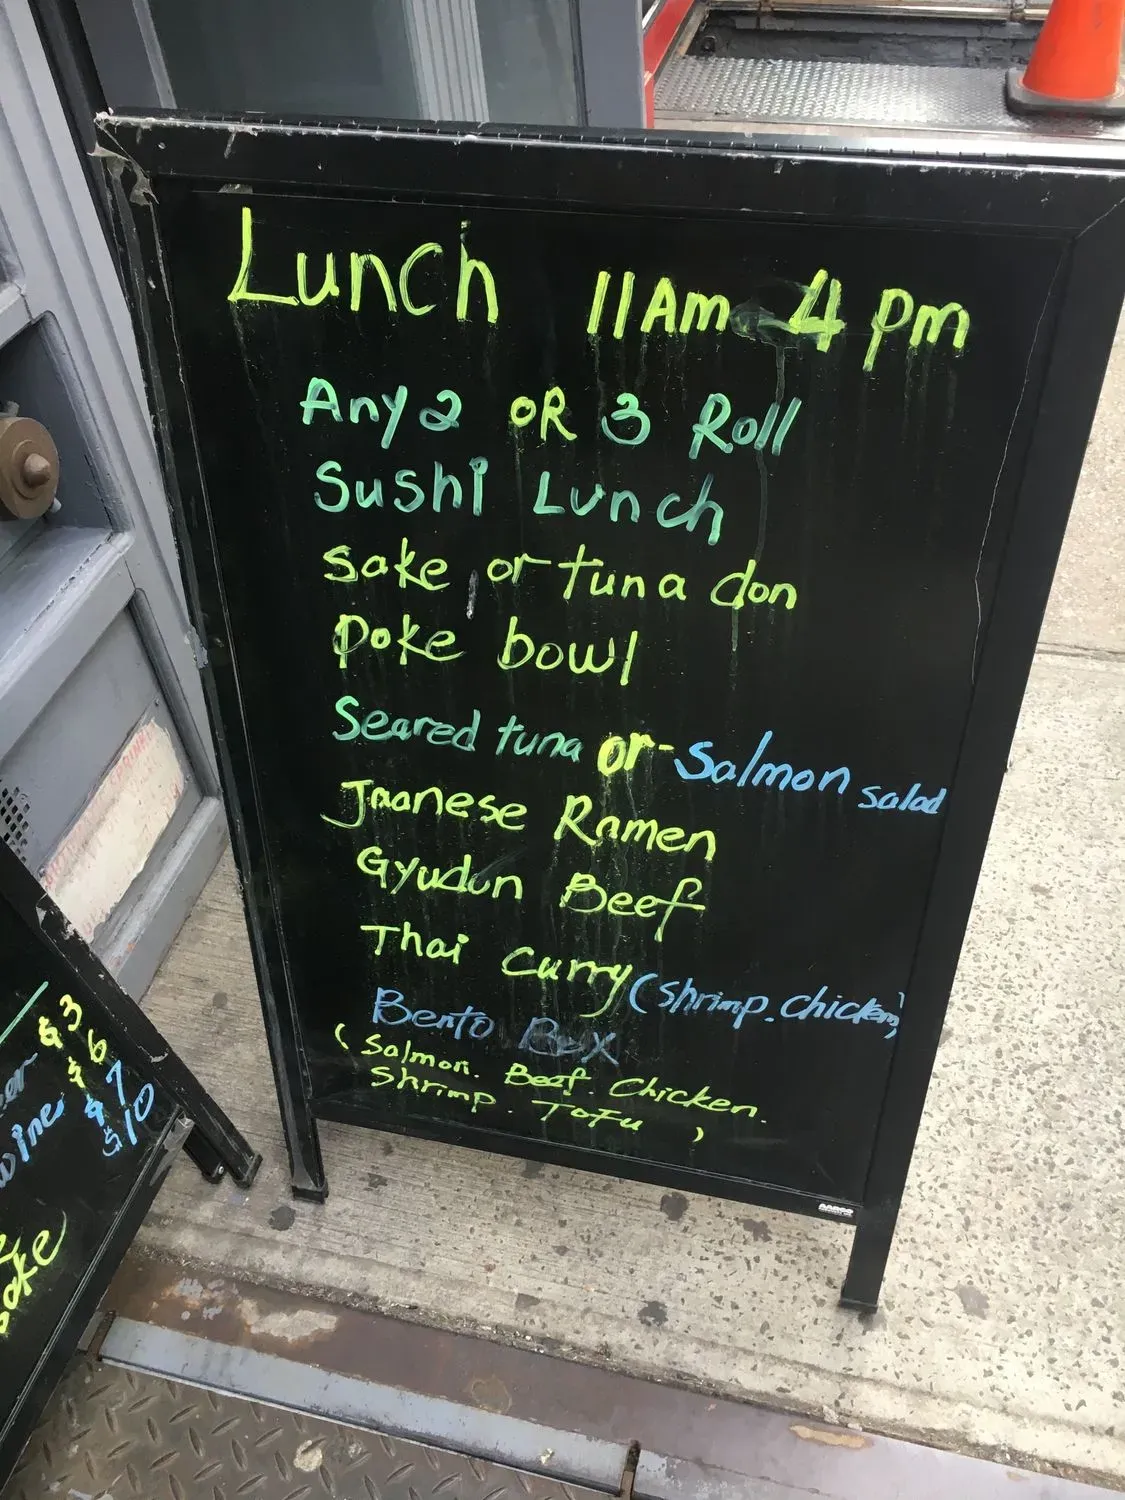 Lunch 11Am 4 pm
Any 2 OR 3 Roll
Sushi Lunch
Sake or tuna don
Poke bowl
Seared tuna or Salmon salad
Jaanese Ramen
Gyudun Beef
Thai Curry (shrimp. chicken)
Bento Box
(Salmon. Beef. Chicken.
Shrimp. TOFU )
$3
$6
wine $7
$10